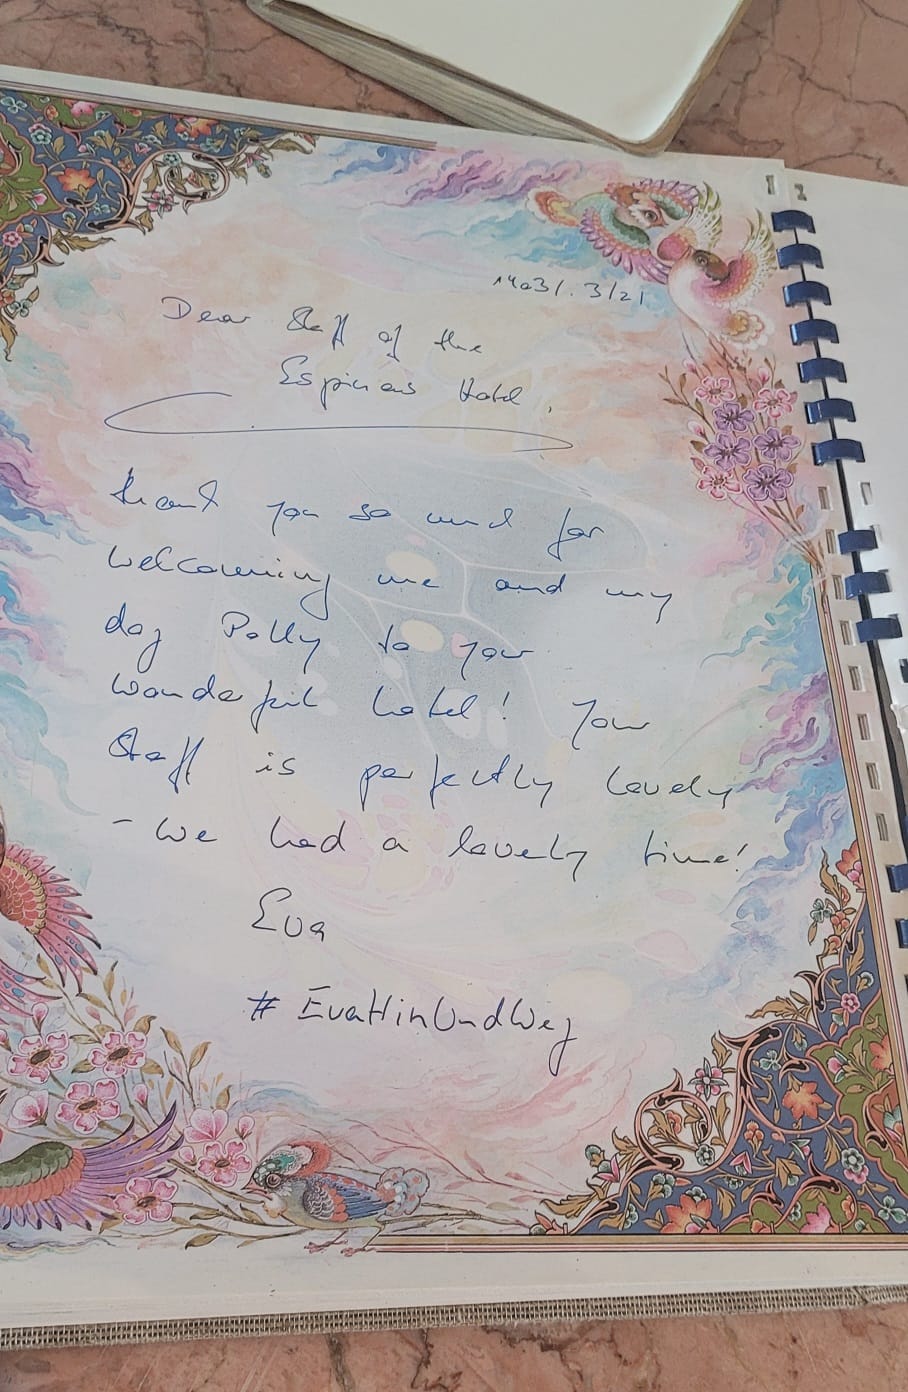 1403/.3/21
Dear Staff of the
Espinas Hotel,
thank you so much for
welcoming me and my
dog Polly to your
wonderful hotel! Your
Staff is perfectly lovely
- We had a lovely time!
Eva
# EvaHinUndWeg